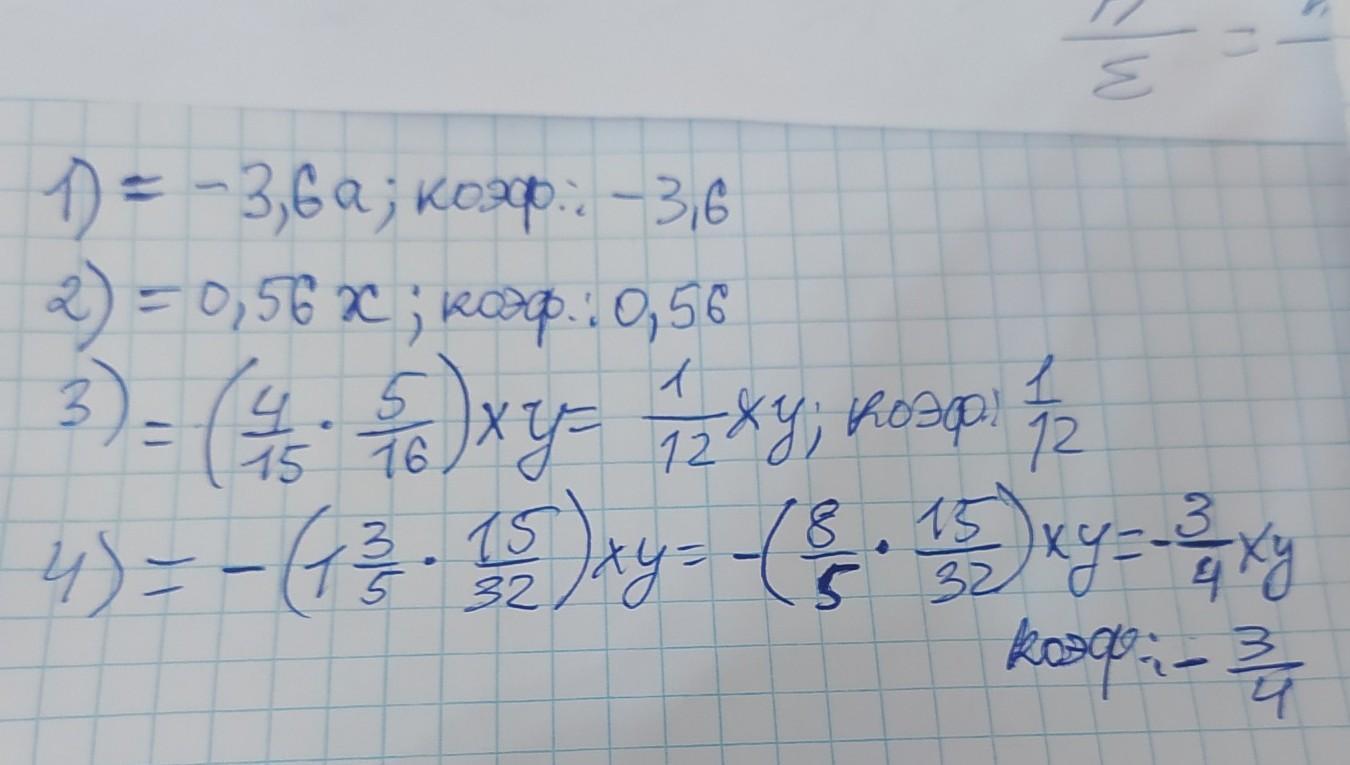 1) = -3,6a; коэф.: -3,6
2) = 0,56x; коэф.: 0,56
3) = (4/15 · 5/16)xy = 1/12 xy; коэф: 1/12
4) = -(1 3/5 · 15/32)xy = -(8/5 · 15/32)xy = -3/4 xy
коэф.: - 3/4